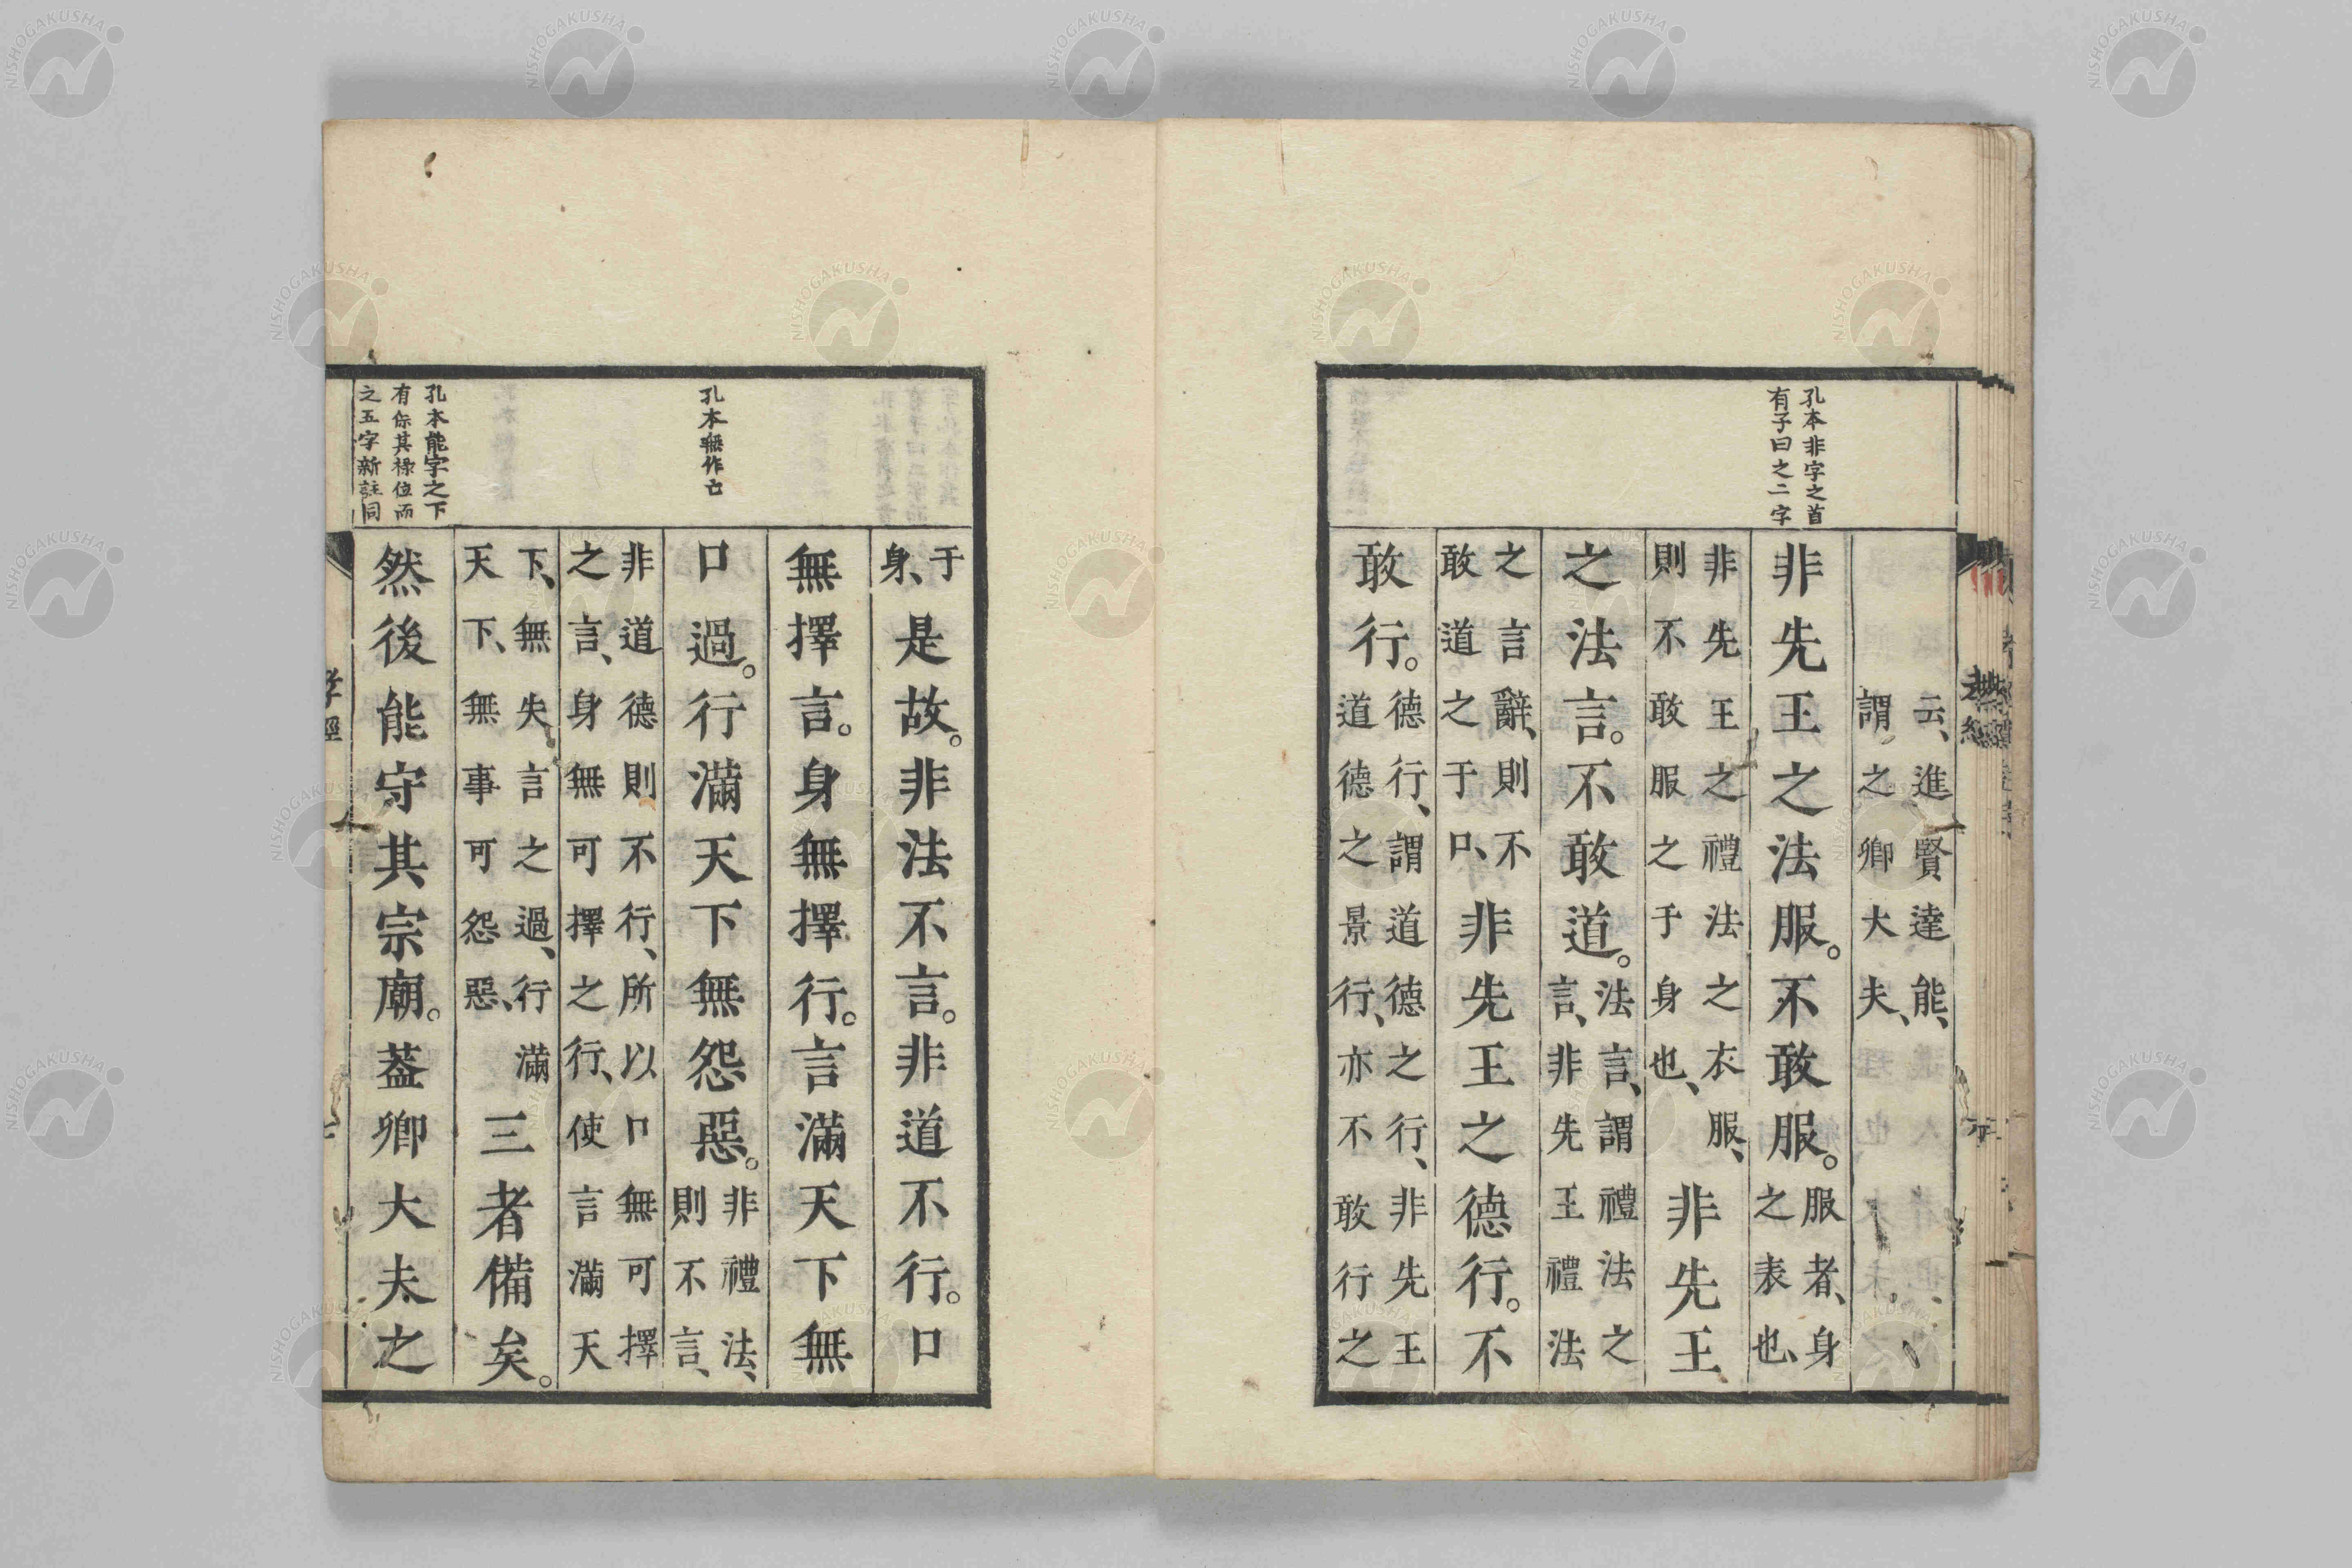 孔本非字之首
有子曰之二字
云、進賢達能、
謂之卿大夫、
非先王之法服。不敢服。服者、身
之表也、
非先王之禮法之衣服、
則不敢服之于身也、非先王
之法言。不敢道。法言、謂禮法之
言、非先王禮法
之言言辭、則不
敢道之于口、非先王之德行。不
敢行。德行、謂道德之行、非先王
道德之景行、亦不敢行之
孔本無作亡
孔本能字之下
有保其祿位而
之五字新註同
于
身、是故。非法不言。非道不行。口
無擇言。身無擇行。言滿天下無
口過。行滿天下無怨惡。非禮法、
則不言、
非道德則不行、所以口無可擇
之言、身無可擇之行、使言滿天
下、無失言之過、行滿
天下、無事可怨惡、三者備矣。
然後能守其宗廟。蓋卿大夫之
孝經
NISHOGAKUSHA